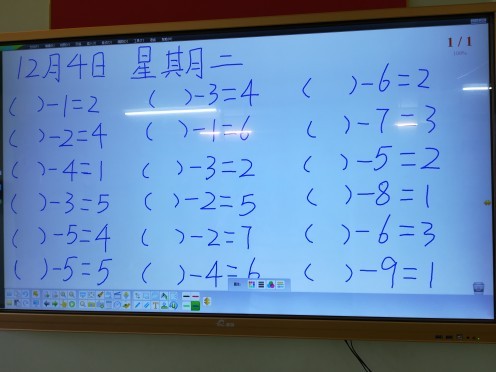 1/1
12月4日 星期二
( )-1=2 ( )-3=4 ( )-6=2
( )-2=4 ( )-1=6 ( )-7=3
( )-4=1 ( )-3=2 ( )-5=2
( )-3=5 ( )-2=5 ( )-8=1
( )-5=4 ( )-2=7 ( )-6=3
( )-5=5 ( )-4=6 ( )-9=1